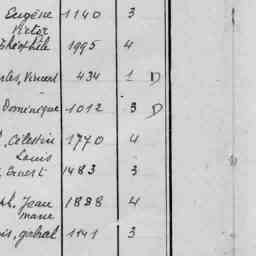 Eugène 1140 3
Victor
Théophile 1995 4
les, Vincent 434 1 D
Dominique 1012 3 D
, Célestin 1770 4
Louis
, Ernest 1483 3
ph, Jean 1888 4
marie
is, gabriel 1141 3